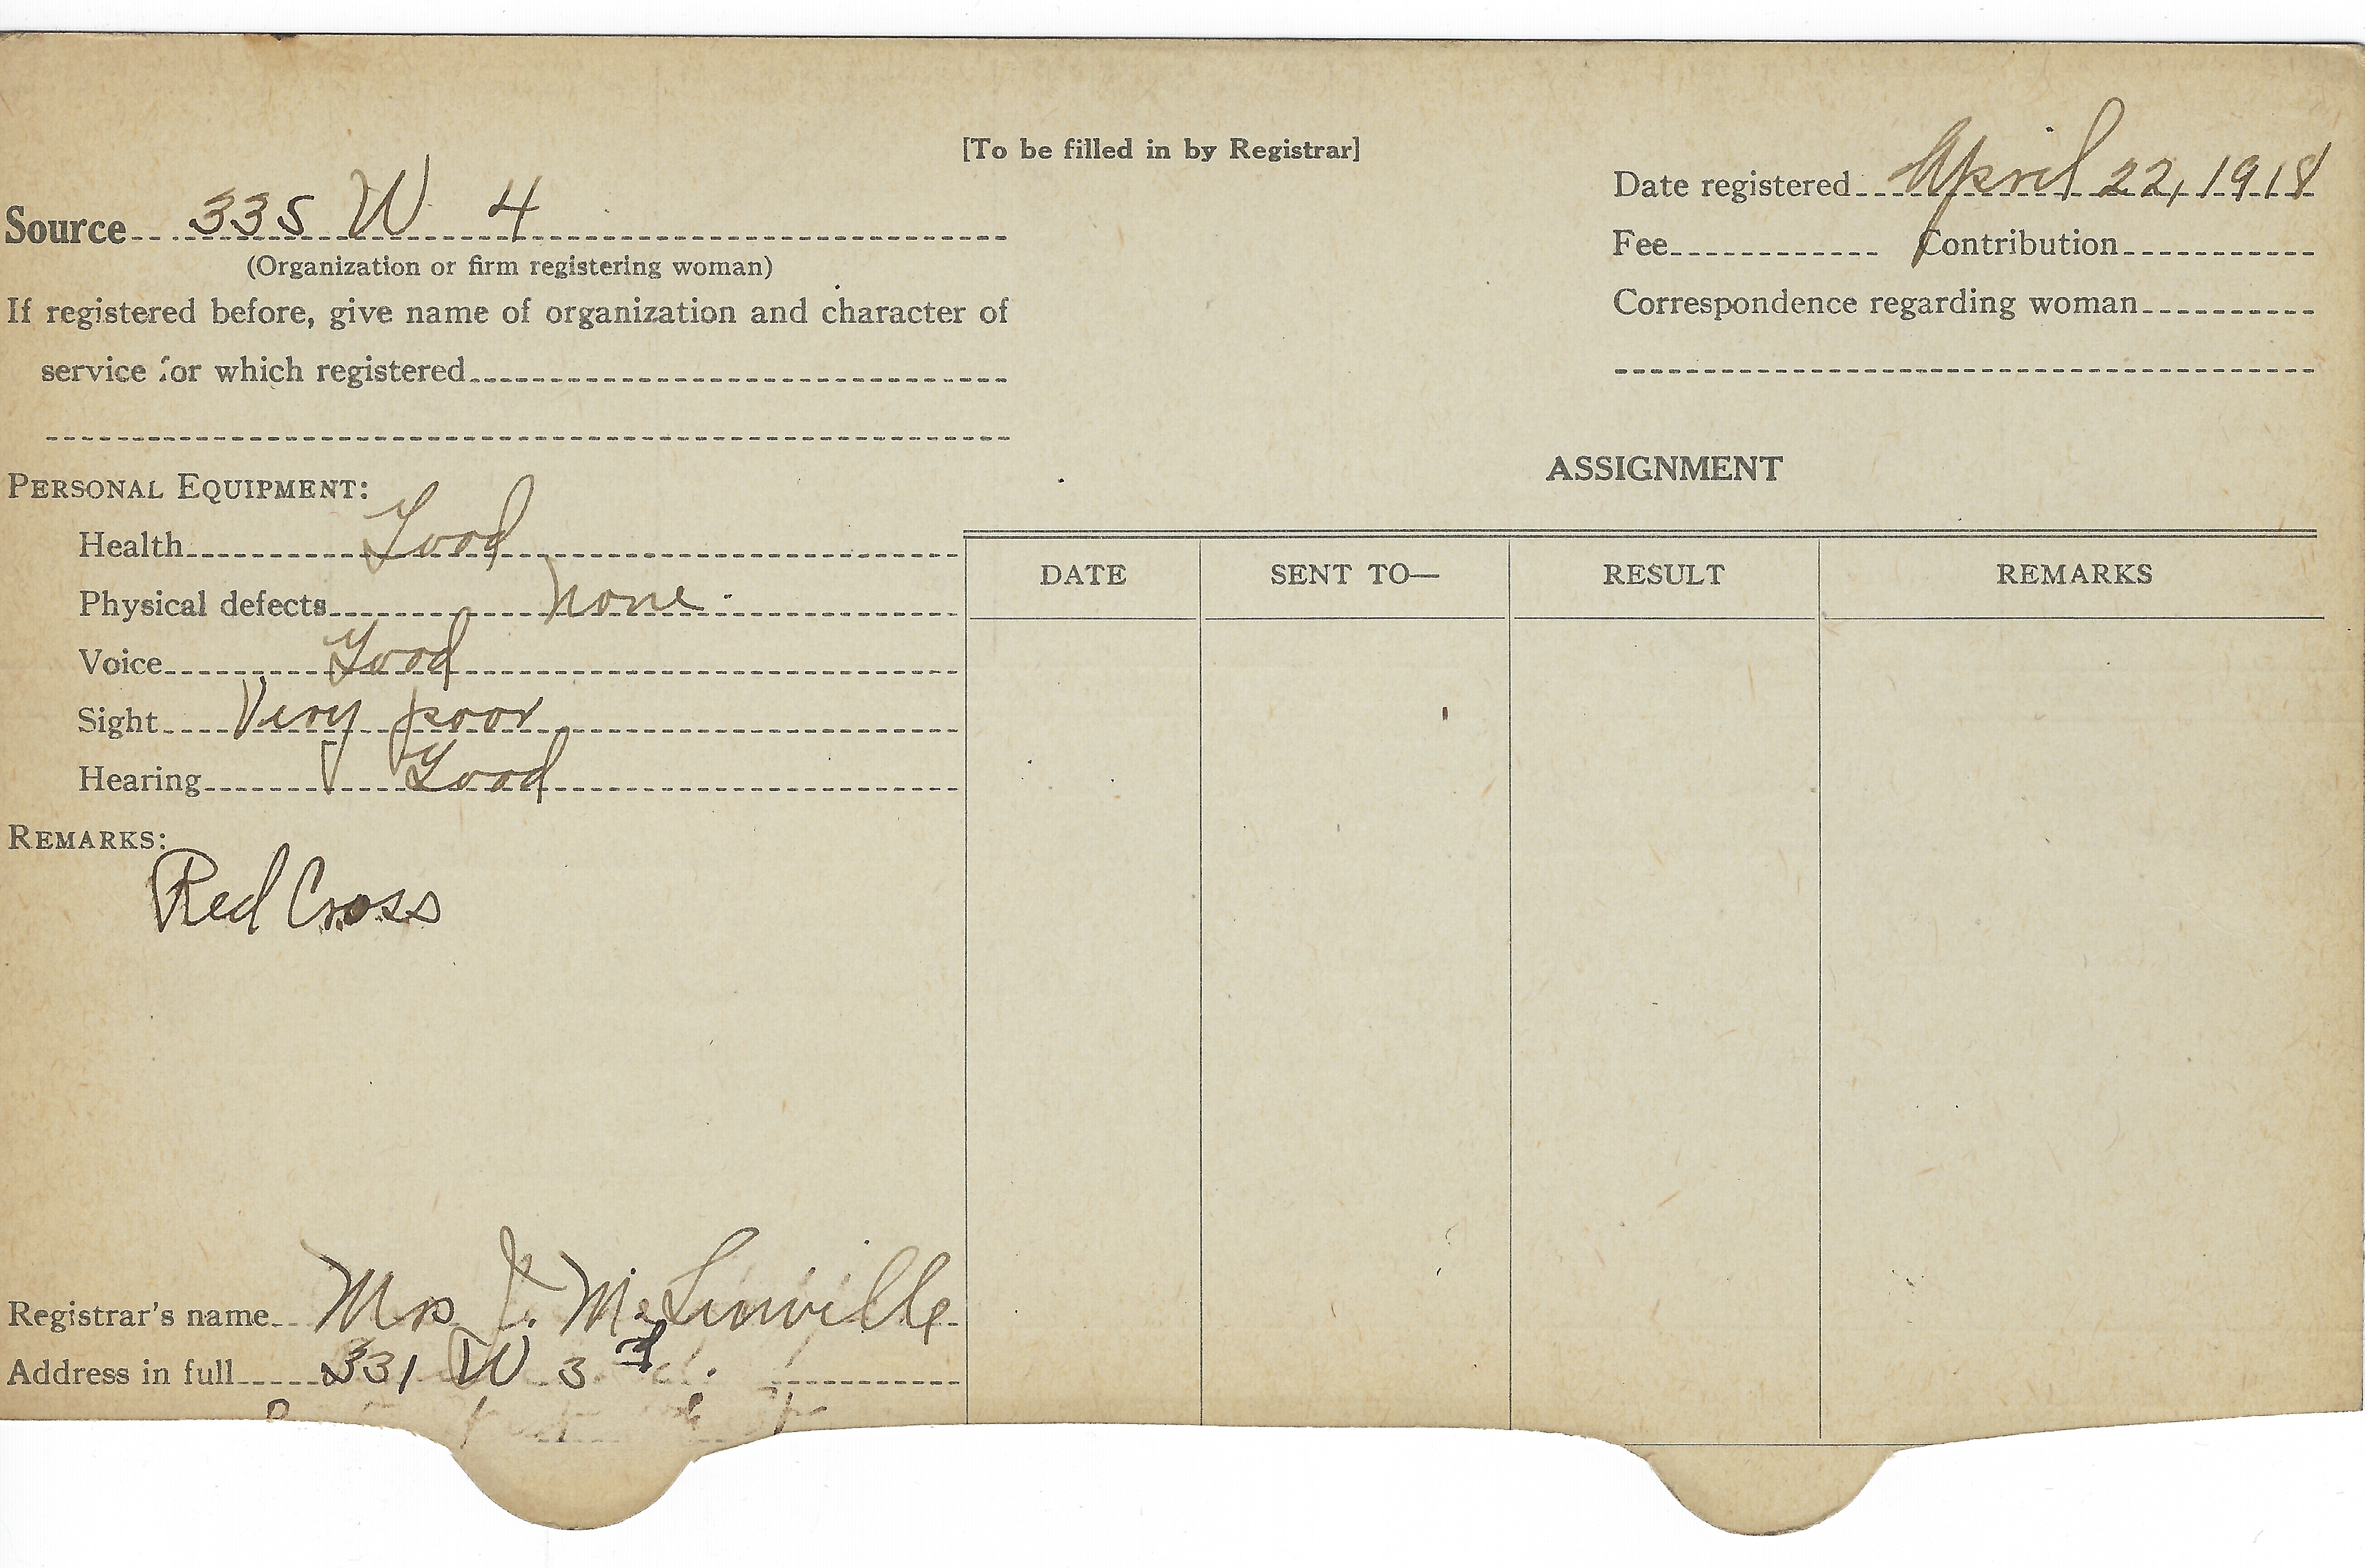 [To be filled in by Registrar]
Source 335 W 4
(Organization or firm registering woman)
If registered before, give name of organization and character of
service for which registered
Date registered April 22, 1918
Fee Contribution
Correspondence regarding woman
PERSONAL EQUIPMENT:
Health Good
Physical defects none
Voice Good
Sight Very poor
Hearing Good
REMARKS:
Red Cross
ASSIGNMENT
DATE SENT TO— RESULT REMARKS
Registrar's name Mrs J. Mc Linville
Address in full 331 W 3